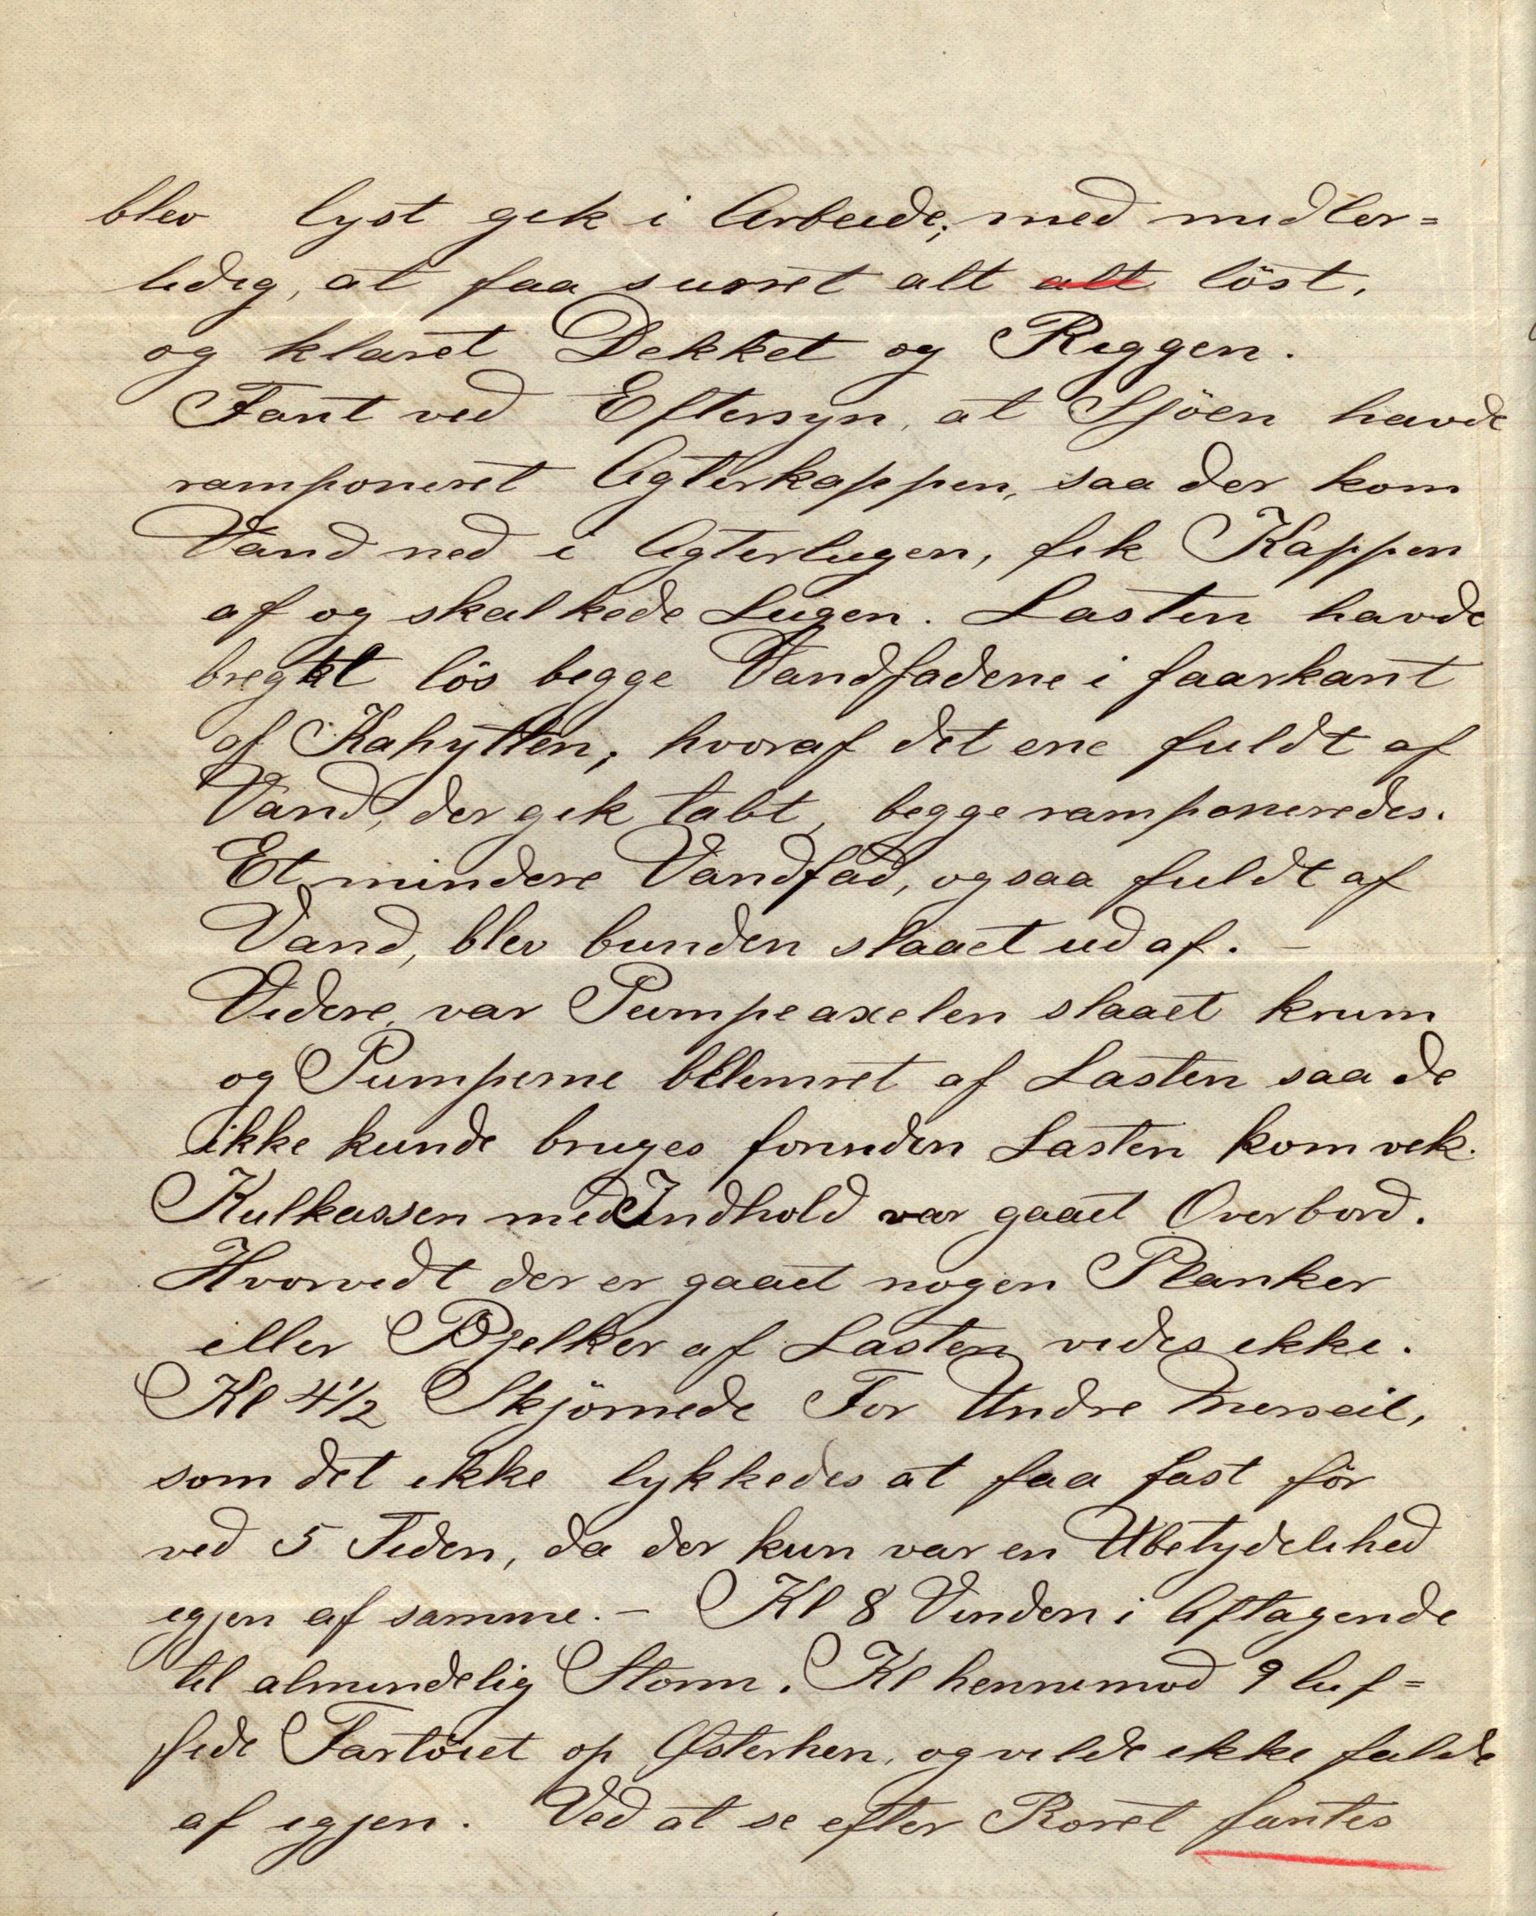 blev lyst gik i Arbeide; med midler=
tidig, at faa surret alt alt löst,
og klaret Dekket og Riggen.
Fant ved Eftersyn, at Sjöen havde
ramponeret Agterkappen, saa der kom
Vand ned i Agterlugen, fik Kappen
af og skalkede Lugen. Lasten havde
brægket lös begge Vandfadene i faarkant
af Kahytten, hvoraf det ene fuldt af
Vand, der gik tabt, begge ramponeredes.
Et mindre Vandfad, ogsaa fuldt af
Vand, blev bunden slaaet ud af. —
Videre, var Pumpeaxelen slaaet krum
og Pumperne blemret af Lasten saa de
ikke kunde bruges forinden Lasten kom vek.
Kulkassen med Indhold var gaaet Overbord.
Hvorvidt der er gaaet nogen Planker
eller Bjelker af Lasten vides ikke.
Kl 4½ Skjörnede For Undre Merseil,
som det ikke lykkedes at faa fast för
ved 5 Tiden, da der kun var en Ubetydelihed
igjen af samme. — Kl 8 Vinden i Aftagende
til almindelig Storm. Kl hennimod 9 luf=
fede Fartöiet op Østerhen, og vilde ikke falde
af igjen. Ved at se efter Roret fantes